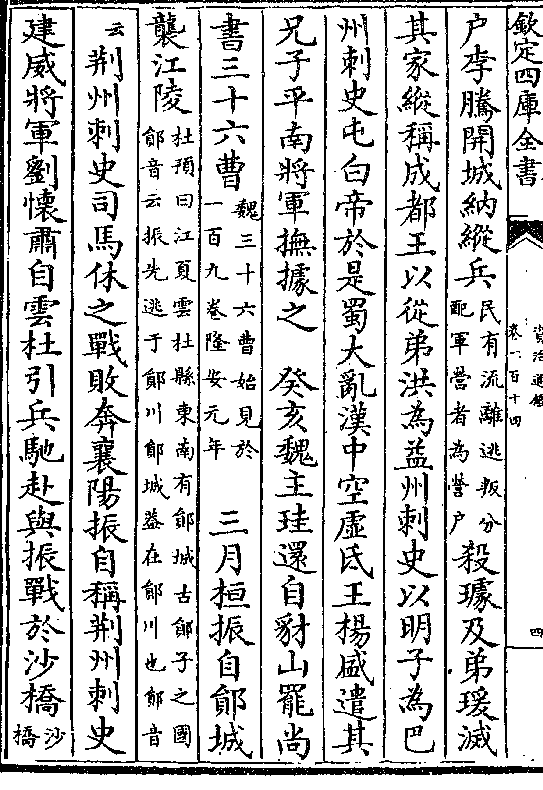 欽定四庫全書
資治通鑑
卷一百十四
四
户李騰開城納縱兵民有流離逃叛分配軍營者為營户殺璩及弟瑗滅
其家縱稱成都王以從弟洪為益州刺史以明子為巴
州刺史屯白帝於是蜀大亂漢中空虚氐王楊盛遣其
兄子平南將軍撫據之　癸亥魏主珪還自豺山罷尚
書三十六曹魏三十六曹始見於一百九卷隆安元年　三月桓振自鄖城
襲江陵杜預曰江夏雲杜縣東南有鄖城古鄖子之國鄖音云振先逃于鄖川鄖城葢在鄖川也鄖音
云荆州刺史司馬休之戰敗奔襄陽振自稱荆州刺史
建威將軍劉懷肅自雲杜引兵馳赴與振戰於沙橋沙橋